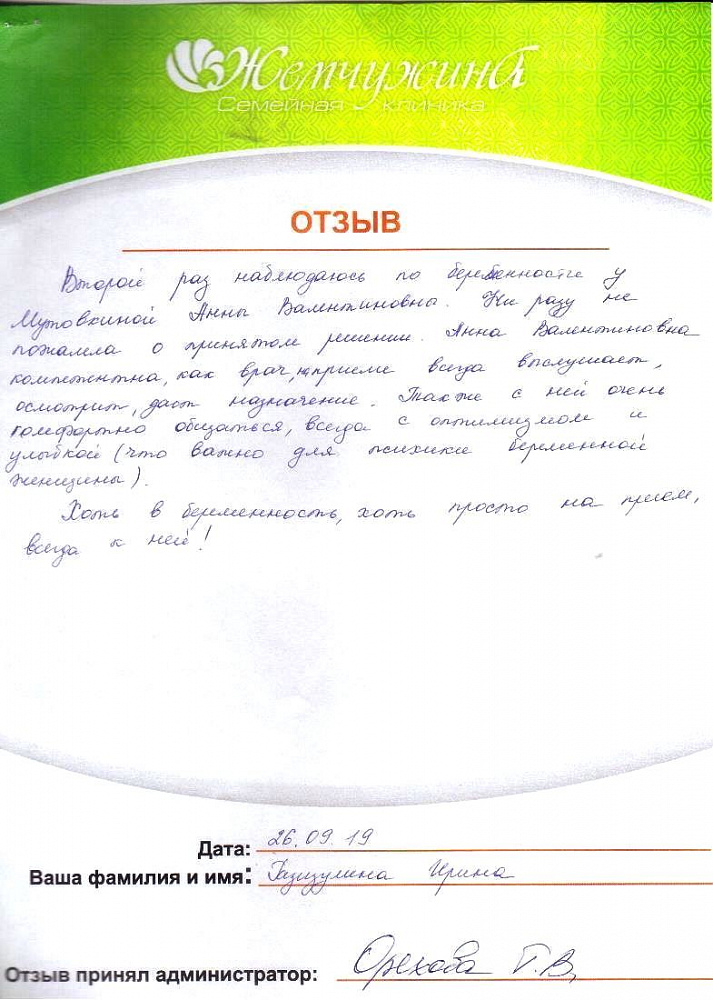 Жемчужина
Семейная клиника
ОТЗЫВ
Второй раз наблюдаюсь по беременности у
Мутовкиной Анны Валентиновны. Ни разу не
пожалела о принятом решении. Анна Валентиновна
компетентна, как врач, на приеме всегда выслушает,
осмотрит, даст назначение. Также с ней очень
комфортно общаться, всегда с оптимизмом и
улыбкой (что важно для психики беременной
женщины).
Хоть в беременность, хоть просто на прием,
всегда к ней!
Дата: 26.09.19
Ваша фамилия и имя: Газизулина Ирина
Отзыв принял администратор: Орехова Г.В.